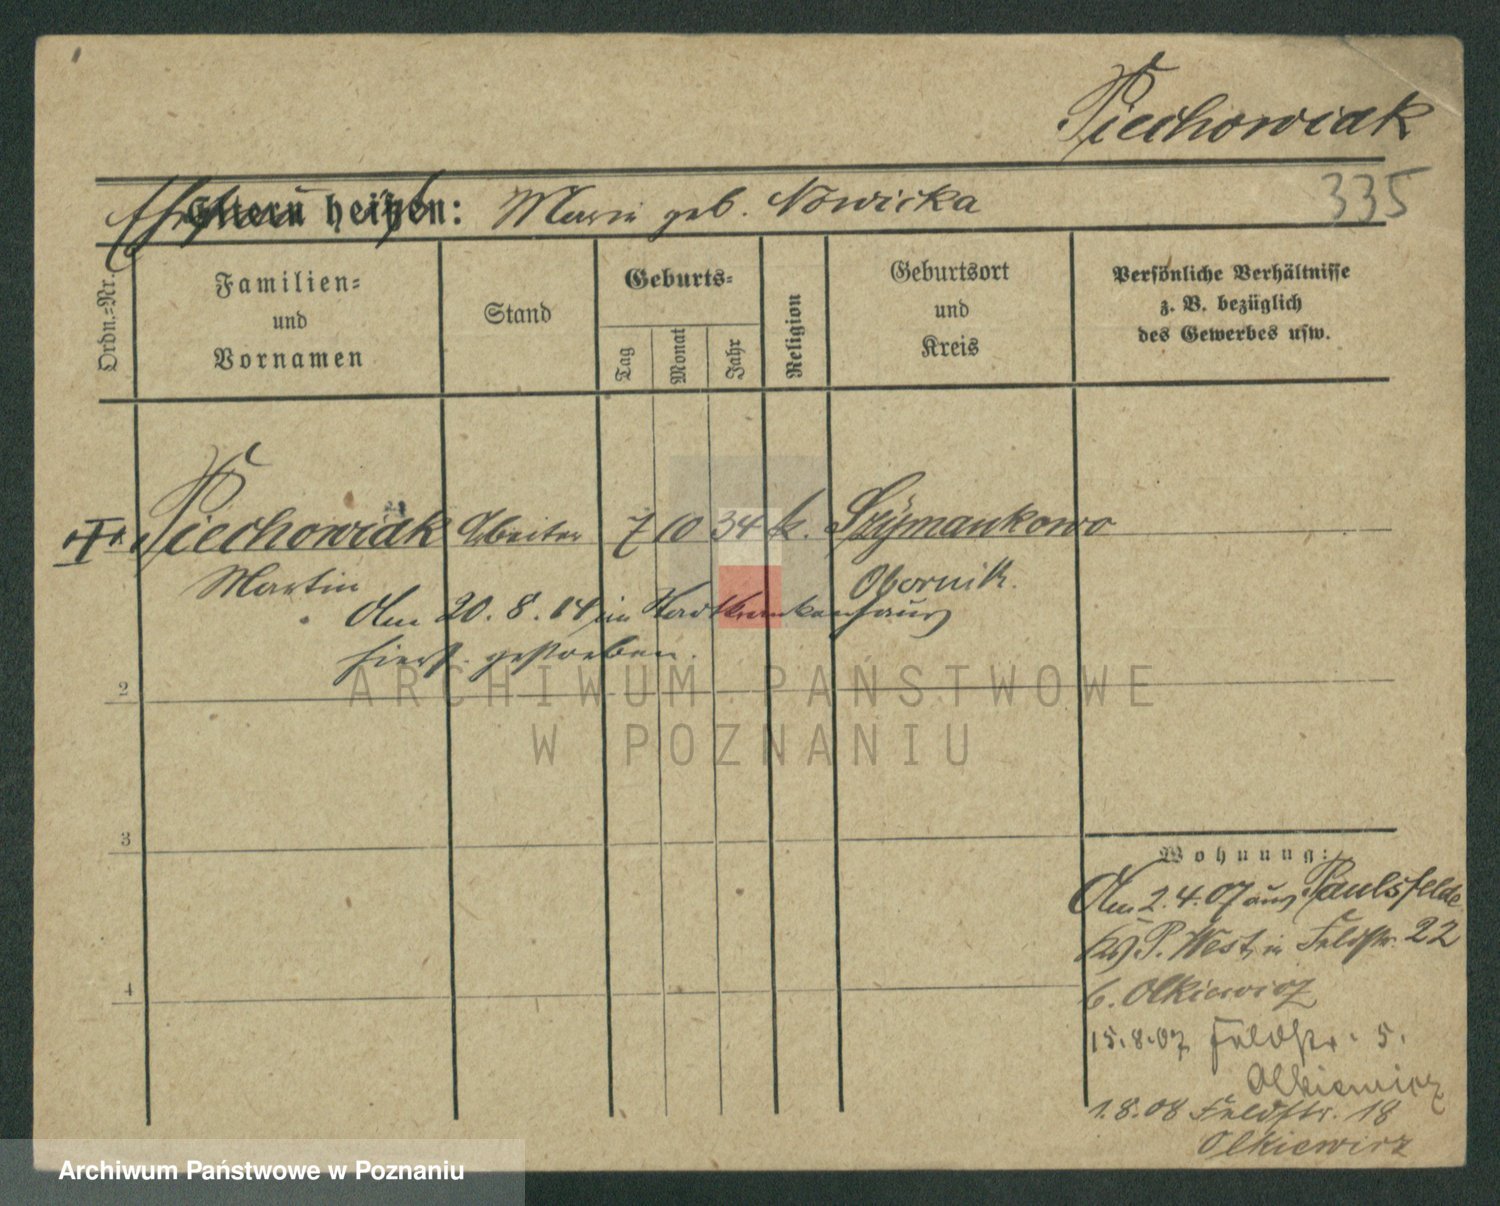 Piechowiak
335
Eltern heißen: Marie geb. Nowicka
Ordn.-Nr.
Familien-
und
Vornamen
Stand
Geburts-
Tag
Monat
Jahr
Religion
Geburtsort
und
Kreis
Persönliche Verhältnisse
z. B. bezüglich
des Gewerbes usw.
Piechowiak Arbeiter 7 10 34 k. Szymankowo
Martin Obornik.
Am 20. 8. 14 im Stadtkrankenhaus
hiers. gestorben.
2
3
4
Wohnung:
Am 2.4.07 aus Paulsfelde
Kr. P. West in Feldstr. 22
b. Olkiewicz
15.8.07 Feldstr. 5.
Olkiewicz
1.8.08 Feldstr. 18
Olkiewicz
ARCHIWUM PAŃSTWOWE
W POZNANIU
Archiwum Państwowe w Poznaniu